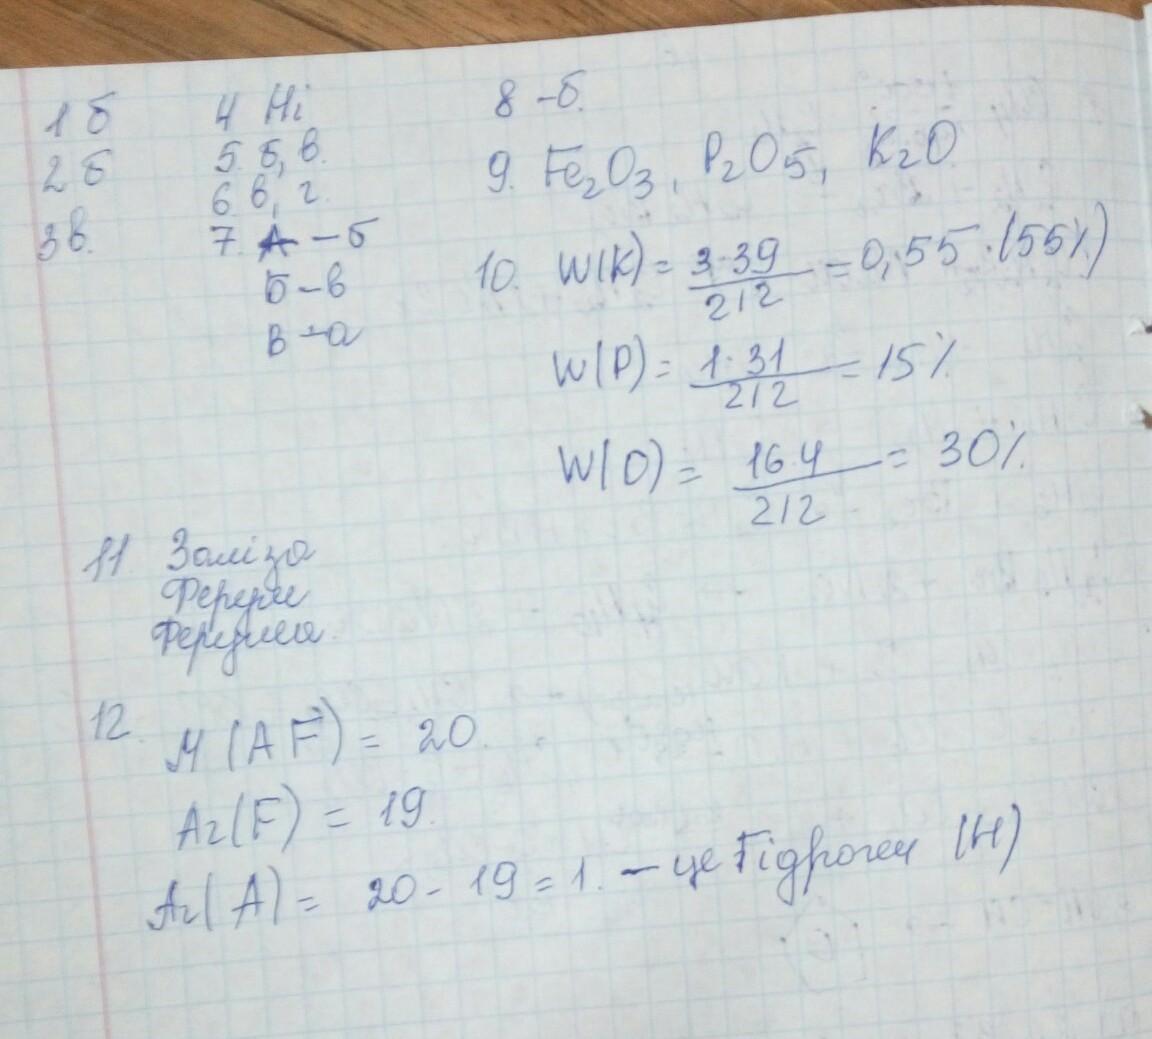 1 б
2 б
3 в.
4 Ні
5. б, в.
6 в, г.
7. А – б
Б – в
В – а
8 – б.
9. Fe₂O₃, P₂O₅, K₂O
10. W(K) = 3·39/212 = 0,55 · (55%)
W(P) = 1·31/212 = 15%
W(O) = 16·4/212 = 30%.
11. Заліза
Ферум
Ферума.
12. M(AF) = 20.
Ar(F) = 19.
Ar(A) = 20 - 19 = 1. – це Гідроген (H)